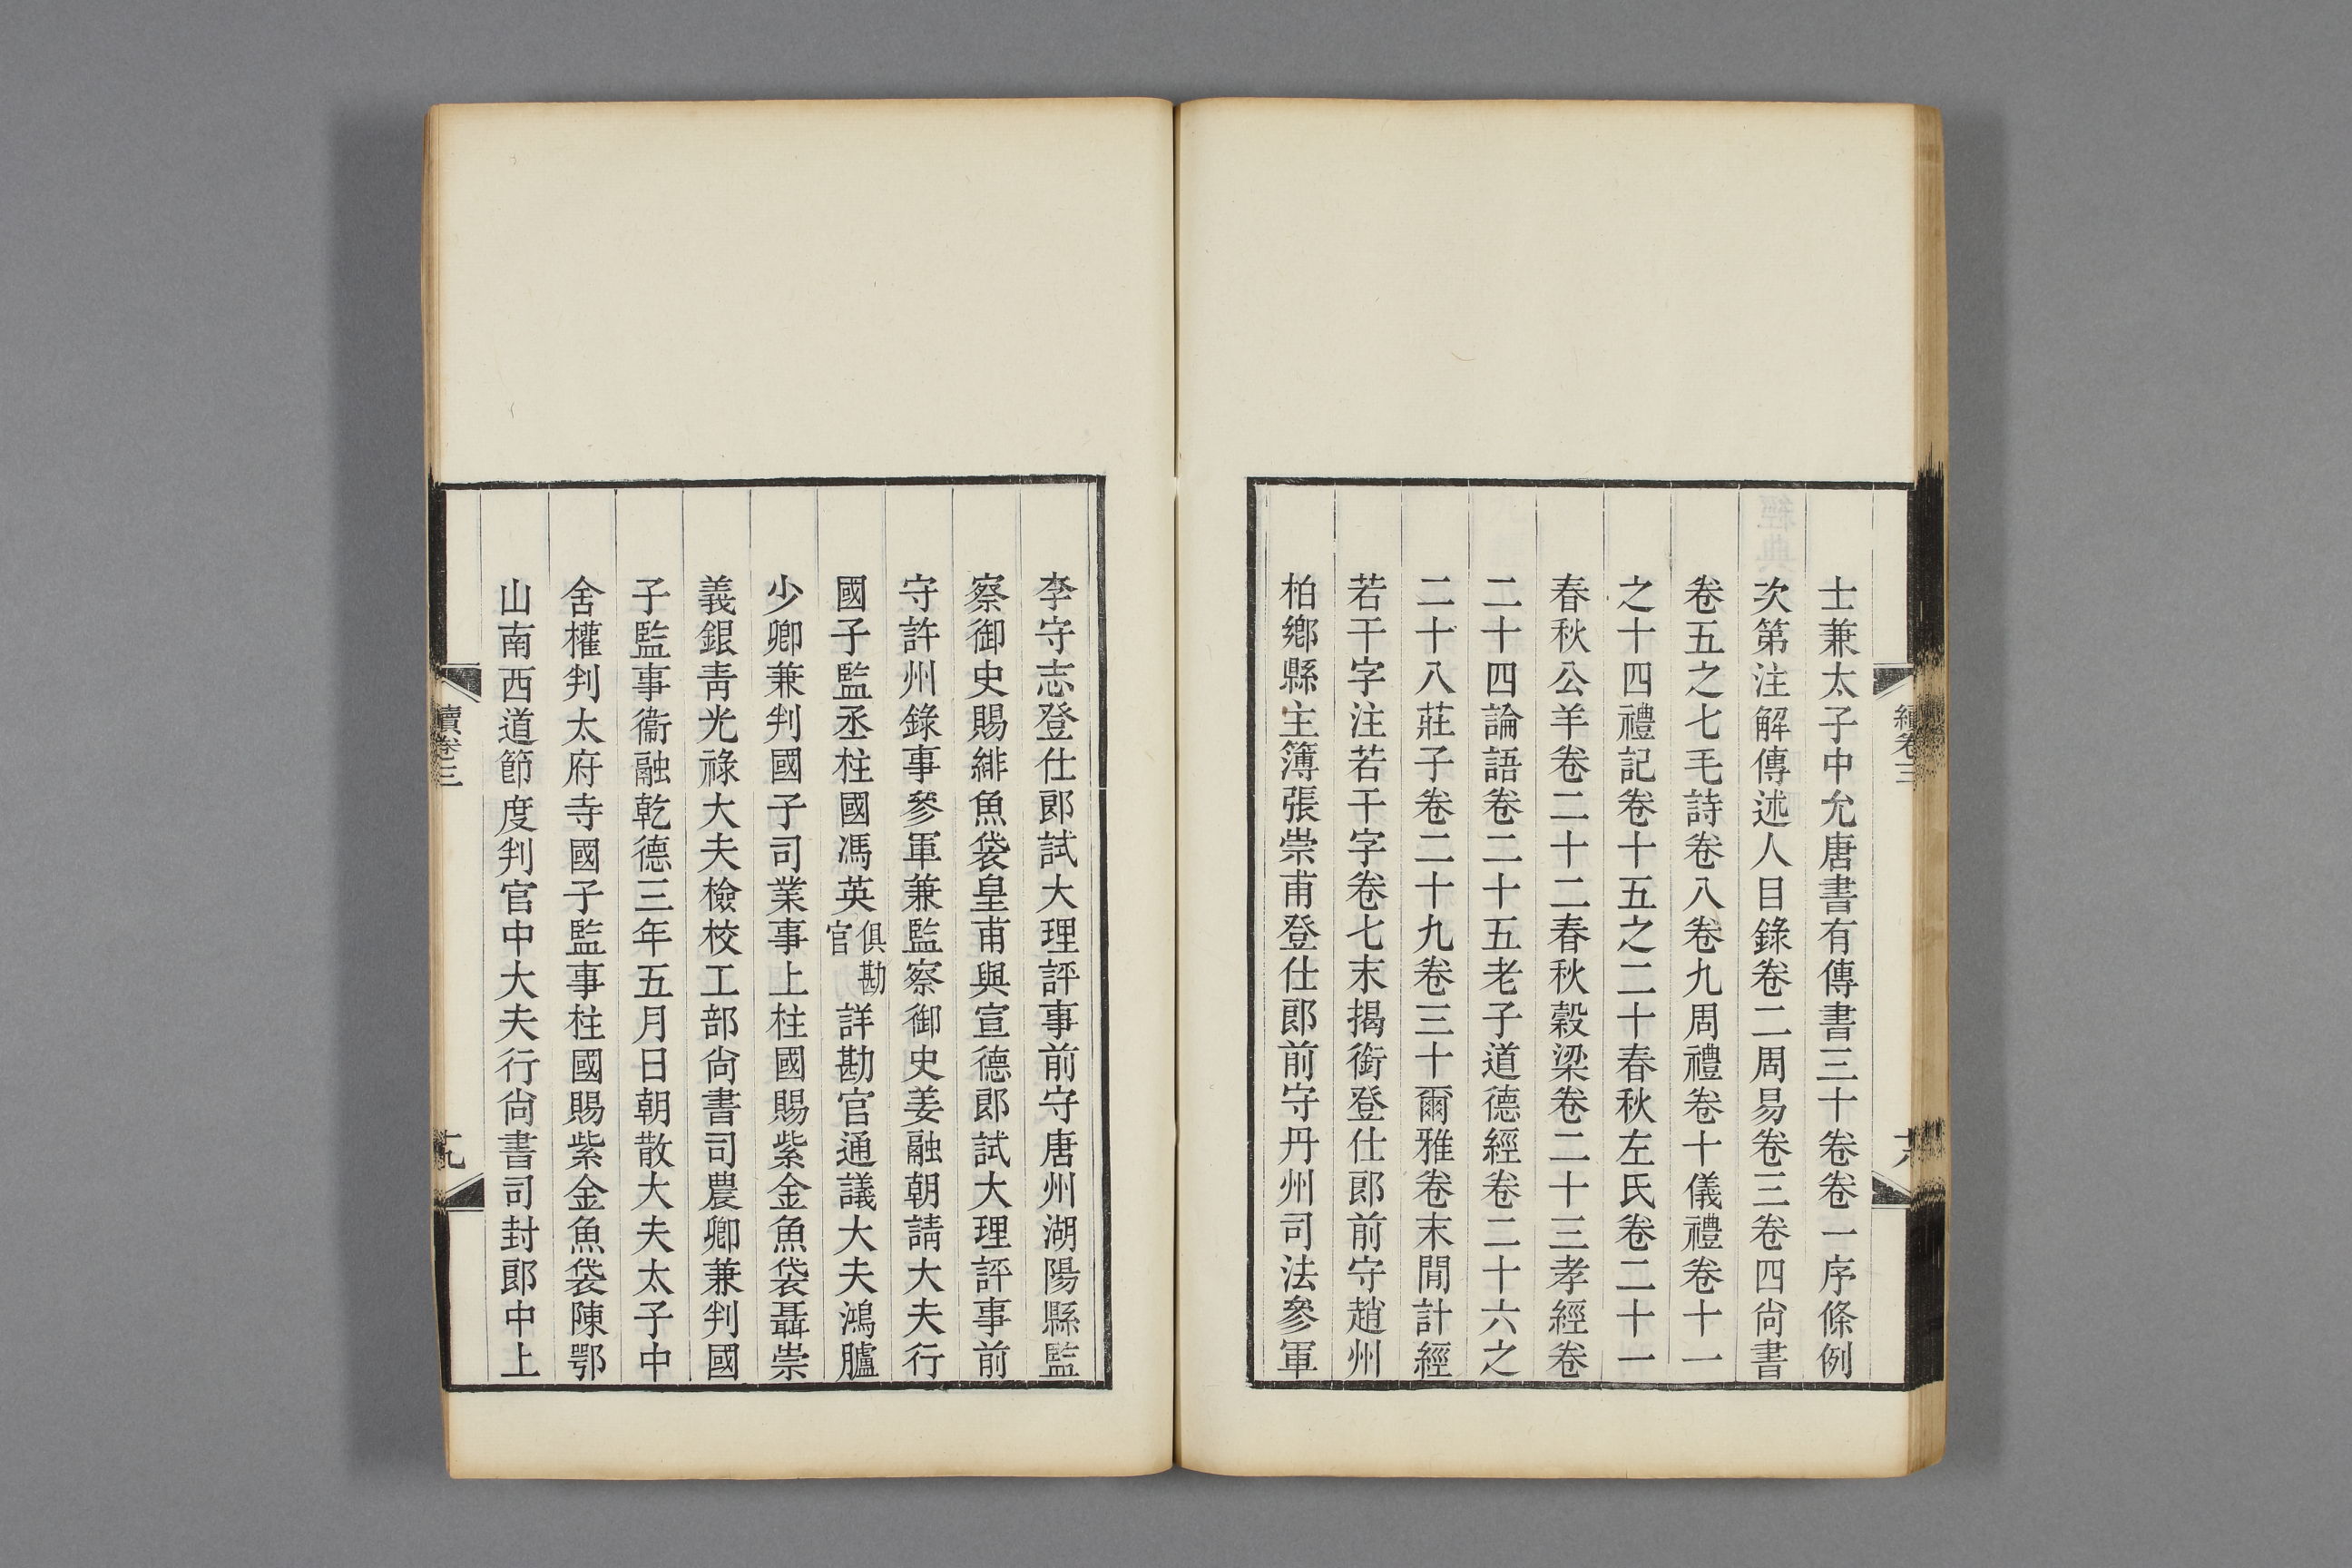 士兼太子中允唐書有傳書三十卷卷一序條例
次第注解傳述人目錄卷二周易卷三卷四尙書
卷五之七毛詩卷八卷九周禮卷十儀禮卷十一
之十四禮記卷十五之二十春秋左氏卷二十一
春秋公羊卷二十二春秋穀梁卷二十三孝經卷
二十四論語卷二十五老子道德經卷二十六之
二十八莊子卷二十九卷三十爾雅卷末閒計經
若干字注若干字卷七末揭銜登仕郎前守趙州
柏鄉縣主簿張崇甫登仕郎前守丹州司法參軍
李守志登仕郎試大理評事前守唐州湖陽縣監
察御史賜緋魚袋皇甫與宣德郎試大理評事前
守許州錄事參軍兼監察御史姜融朝請大夫行
國子監丞柱國馮英俱勘官詳勘官通議大夫鴻臚
少卿兼判國子司業事上柱國賜紫金魚袋聶崇
義銀靑光祿大夫檢校工部尙書司農卿兼判國
子監事衞融乾德三年五月日朝散大夫太子中
舍權判太府寺國子監事柱國賜紫金魚袋陳鄂
山南西道節度判官中大夫行尙書司封郎中上
續卷三
十九